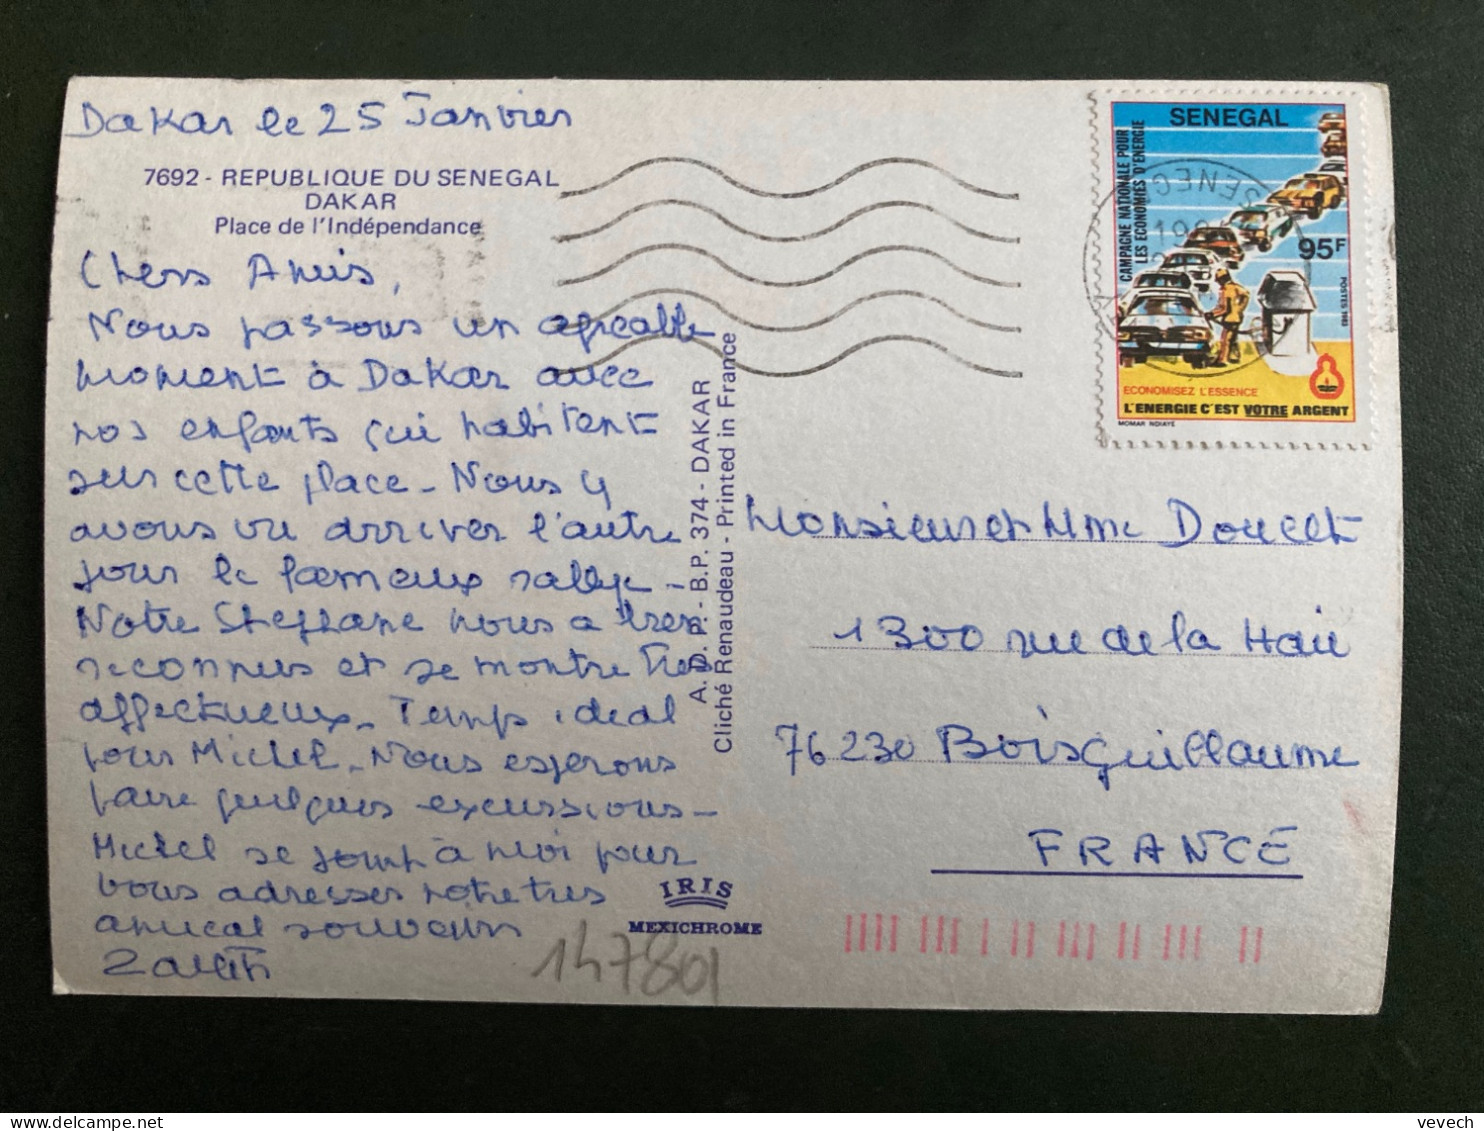 Dakar le 25 Janvier
7692 - REPUBLIQUE DU SENEGAL
DAKAR
Place de l'Indépendance
Chers Amis,
Nous passons un agréable
moment à Dakar avec
nos enfants qui habitent
sur cette place - Nous y
avons vu arriver l'autre
jour le fameux rallye -
Notre Stephane nous a bien
reconnus et se montre très
affectueux - Temps ideal
pour Michel - Nous esperons
faire quelques excursions -
Michel se joint à moi pour
vous adresser notre très
amical souvenir
A.D.P. - B.P. 374 - DAKAR
Cliché Renaudeau - Printed in France
IRIS
MEXICHROME
147801
SENEGAL
CAMPAGNE NATIONALE POUR
LES ECONOMIES D'ENERGIE
95F
POSTES 1983
ECONOMISEZ L'ESSENCE
L'ENERGIE C'EST VOTRE ARGENT
MOMAR NDIAYE
SENEG
Monsieur et Mme Doucet
1300 rue de la Haie
76230 BoisGuillaume
FRANCE
vevech